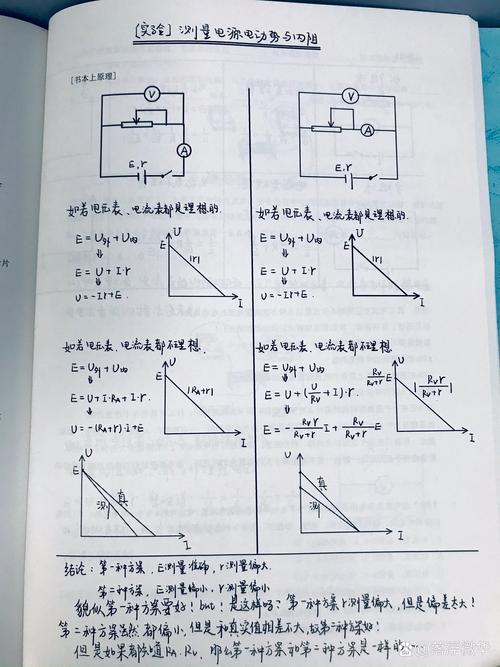 [实验] 测量电源电动势与内阻
[书本上原理]
V
A
E,r
如若电压表、电流表都是理想的.
E = U外 + U内
⇓
E = U + I·r
⇓
U = -Ir+E.
U
E
|r|
I
如若电压表、电流表都不理想.
E = U外 + U内
⇓
E = U + I·RA + I·r.
⇓
U = -(RA+r)·I+E
U
E
|RA+r|
I
U
E
真
测
I
V
A
E,r
如若电压表、电流表都是理想的.
E = U外 + U内
⇓
E = U + I·r
⇓
U = -Ir+E.
U
E
|r|
I
如若电压表、电流表都不理想
E = U外 + U内
⇓
E = U + (U/Rv + I)·r.
⇓
E = - Rvr/Rv+r I + Rv/Rv+r E
U
Rv/Rv+r E
|Rvr/Rv+r|
I
U
真
测
I
结论: 第一种方案, E测量准确, r测量偏大.
第二种方案, E测量偏小, r测量偏小
貌似第一种方案署好! but! 是这样吗? 第一种方案r测量偏大, 但是偏差太大!
第二种方案虽然都偏小, 但是和真实值相差不大, 故第二种好!
但是如果都知道RA. Rv. 那么第一种方案和第二种方案是一样的